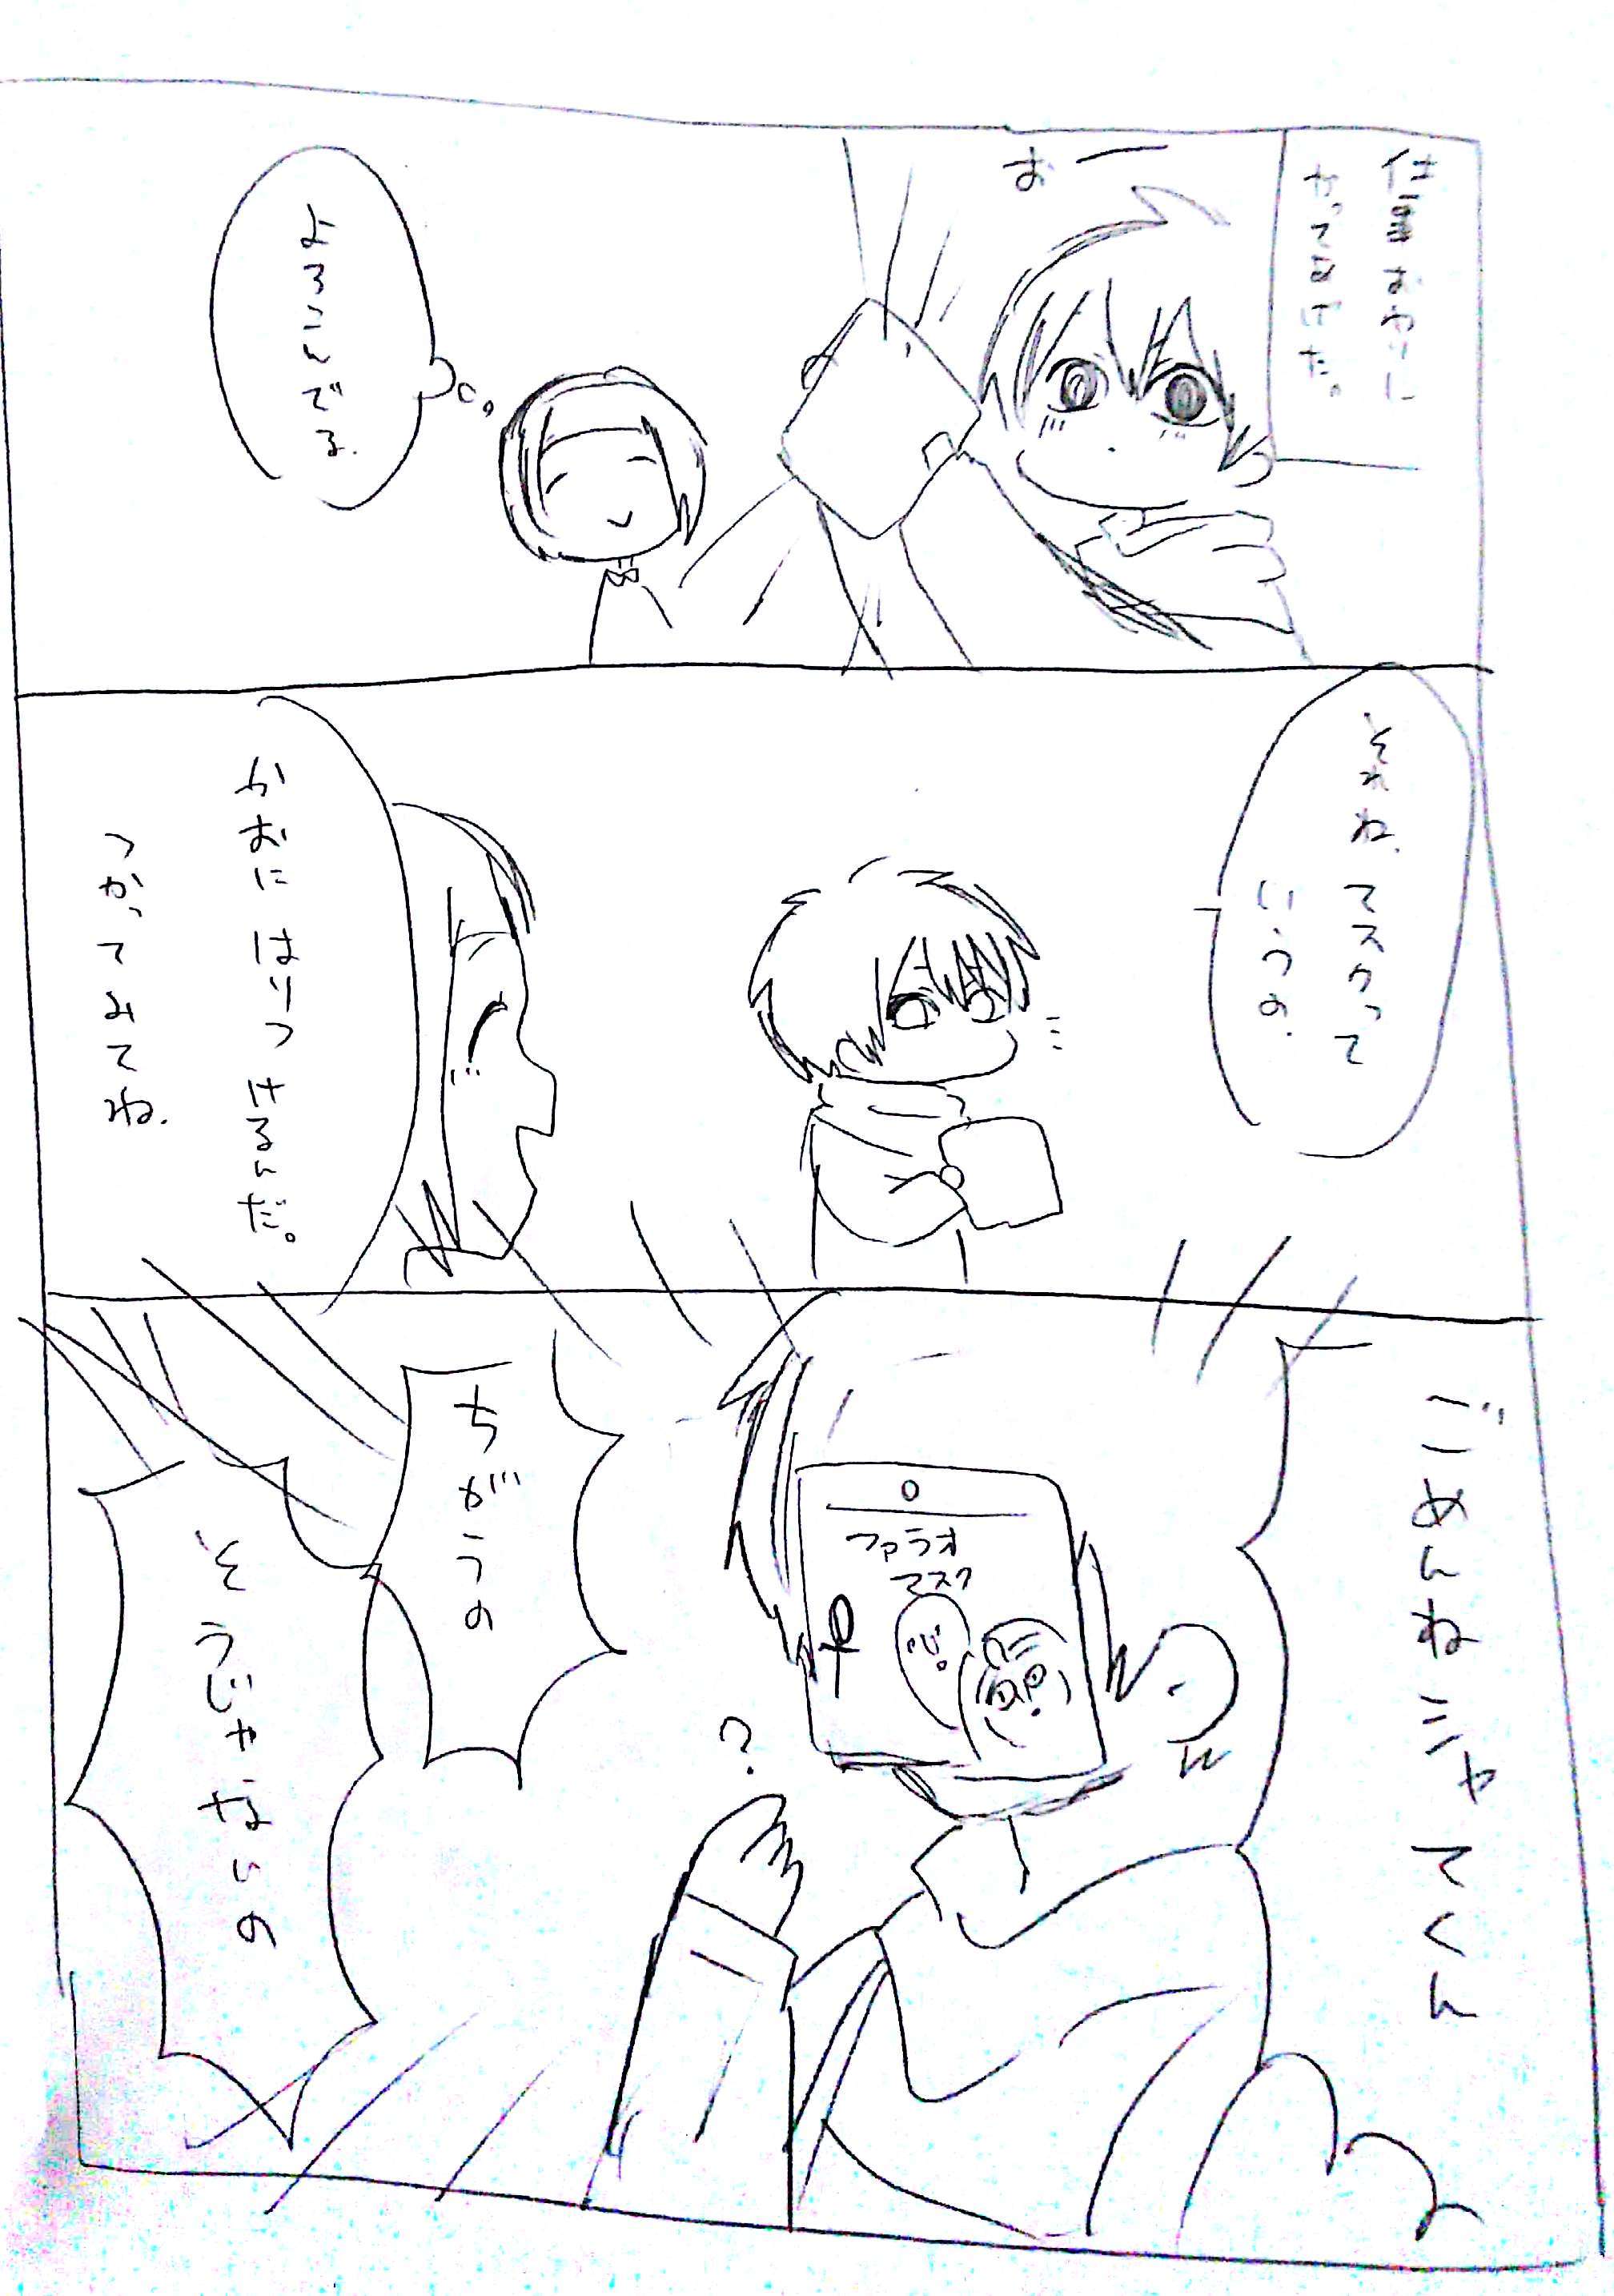 仕事おわりに
かってあげた。
おー
よろこんでる.
それね、マスクって
いうの.
かおにはりつけるんだ。
つかってみてね.
ごめんねミヤマくん
ファラオ
マスク
?
ちがうの
そうじゃないの